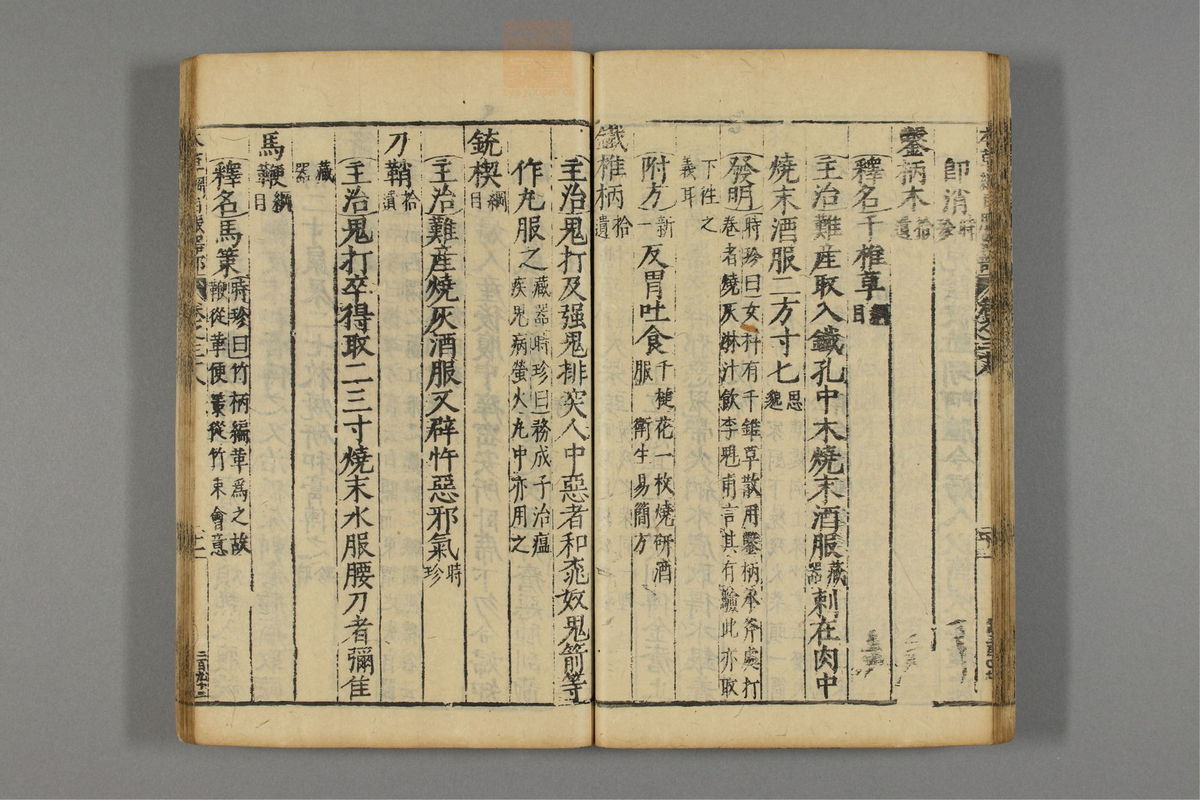 即消時珍
鑿柄木拾遺
釋名千椎草綱目
主治難産取入鐵孔中木燒末酒服藏器刺在肉中
燒末酒服二方寸七思邈
發明時珍曰女科有千錐草散用鑿柄承斧處打
卷者燒灰淋汁飲李魁甫言其有驗此亦取
下徃之
義耳
附方新一反胃吐食千槌花一枚燒研酒
服 衛生易簡方
鐵椎柄拾遺
主治鬼打及强鬼排突人中惡者和桃奴鬼箭等
作丸服之藏器時珍曰務成子治瘟
疾鬼病螢火丸中亦用之
銃楔綱目
主治難産燒灰酒服又辟忤惡邪氣時珍
刀鞘拾遺
主治鬼打卒得取二三寸燒末水服腰刀者彌佳
藏器
馬鞭綱目
釋名馬策時珍曰竹柄編革爲之故
鞭從革便策從竹朿會意